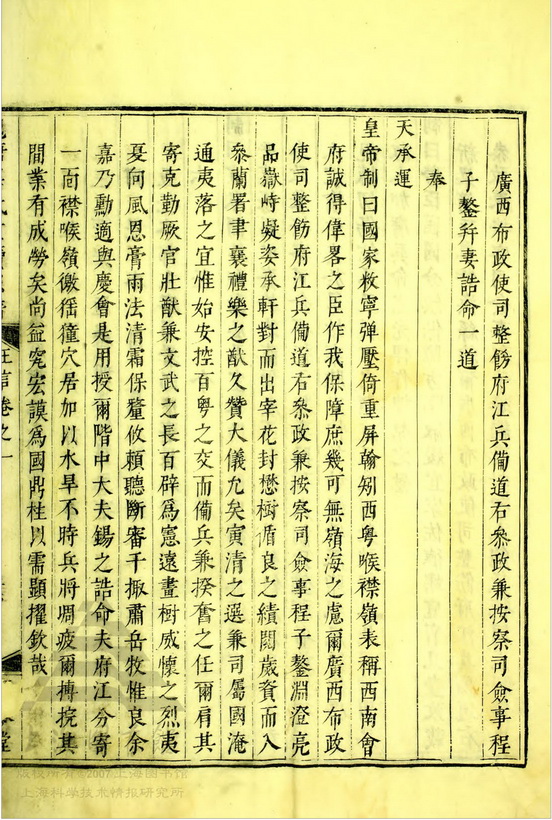 廣西布政使司整飭府江兵備道右叅政兼按察司僉事程
子鏊幷妻誥命一道
奉
天承運
皇帝制曰國家敉寧弹壓倚重屏翰矧西粤喉襟嶺表稱西南會
府誠得偉畧之臣作我保障庶幾可無嶺海之慮爾廣西布政
使司整飭府江兵備道右叅政兼按察司僉事程子鏊淵澄亮
品嶽峙凝姿承軒對而出宰花封懋樹循良之績閲歲資而入
叅蘭署聿襄禮樂之猷久贊大儀允矣寅清之選兼司屬國淹
通夷落之宜惟始安控百粤之交而備兵兼揆奮之任爾肩其
寄克勤厥官壯猷兼文武之長百辟爲憲遠畫樹威懷之烈夷
夏向風恩膏雨法清霜保釐攸頼聽斷審干掫肅岳牧惟良余
嘉乃勳適與慶會是用授爾階中大夫錫之誥命夫府江分寄
一面襟喉嶺徼猺獞穴居加以水旱不時兵將凋疲爾摶捖其
間業有成勞矣尚益究宏謨爲國鼎柱以需顯擢欽哉
卷之一
堂
版权所有©2007上海图书馆
上海科学技术情报研究所